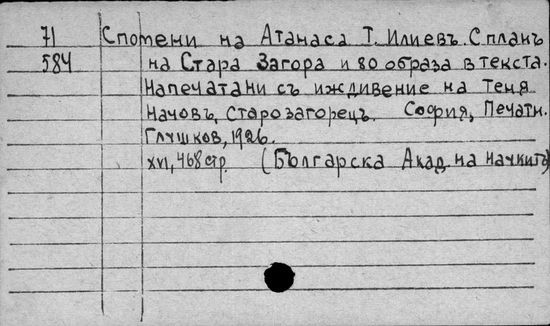 71 Спомени на Атанаса Т. Илиевъ. С планъ
584 на Стара Загора и 80 образа в текста.
Напечатани съ иждивение на Теня
Начовъ, Старозагорецъ. София, Печатн.
Глушков, 1926.
XVI, 468 стр. (Българска Акад. на науките)